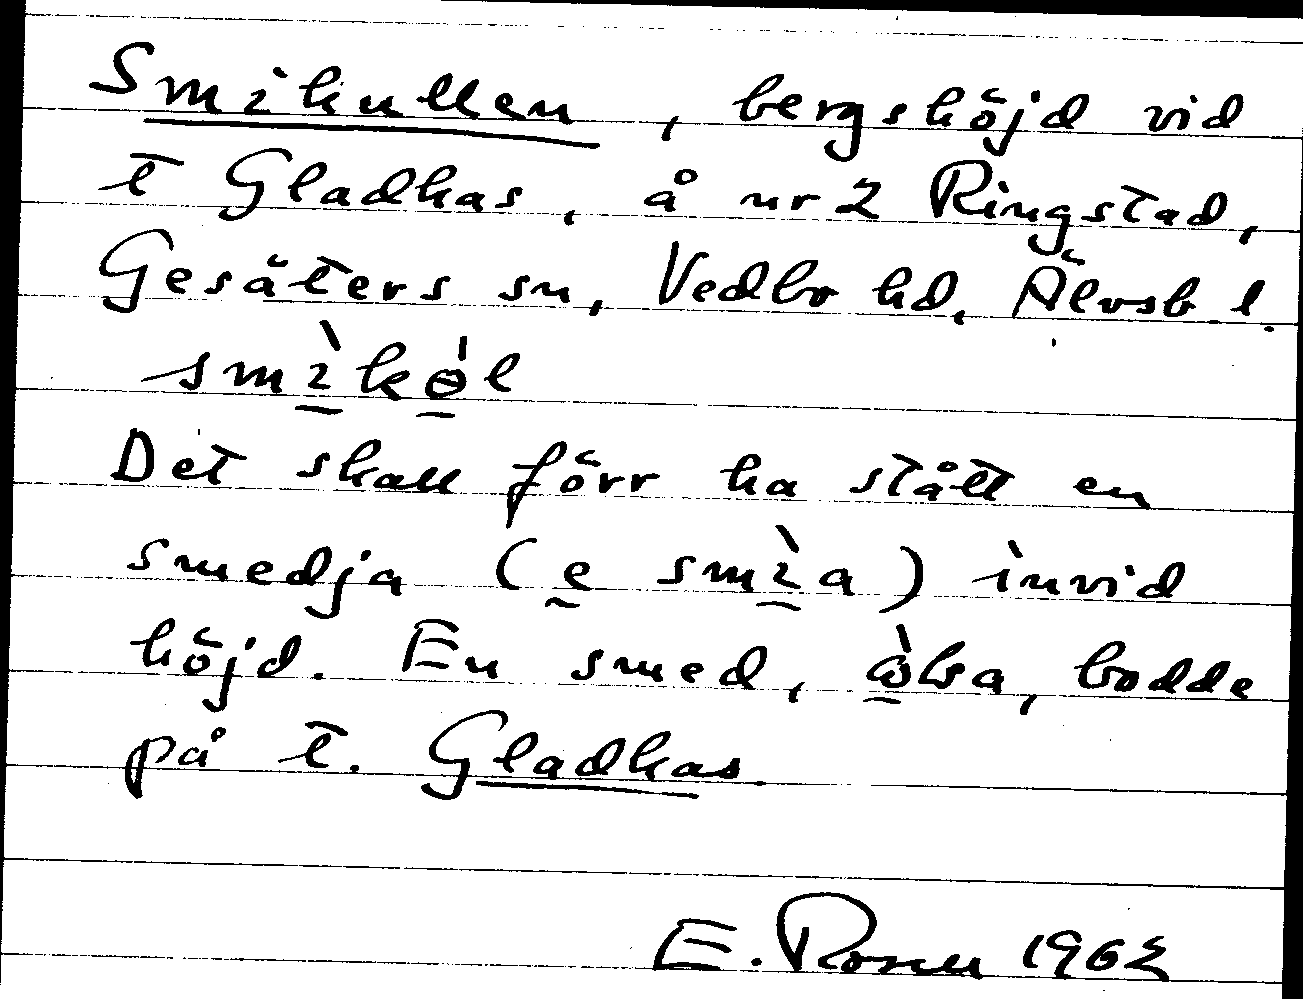 Smikullen, bergshöjd vid
t Gladkas, å nr 2 Ringstad,
Gesäters sn, Vedbo hd, Älvsb l.
smì̠kɵ̠̀l
Det skall förr ha stått en
smedja (e̠ smì̠a) invid
höjd. En smed, bodde
på t. Gladkas.
E. Rosell 1962